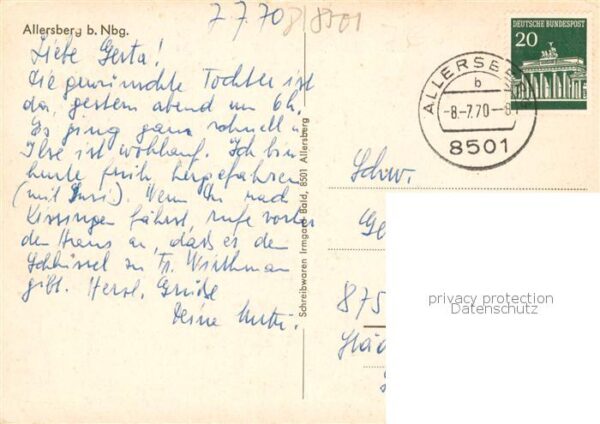 Allersberg b. Nbg.
7.7.70
8501
Liebe Gerta!
Die gewünschte Tochter ist
da, gestern abend um 6h.
Es ging ganz schnell u.
Ilse ist wohlauf. Ich bin
heute früh hergefahren
(mit Susi). Wenn Du nach
Kissingen fährst, rufe vorher
den Hans an, dass er den
Schlüssel zu Fr. Wirthman
gibt. Herzl. Grüße
Deine Mutti.
Schreibwaren Irmgard Bald, 8501 Allersberg
DEUTSCHE BUNDESPOST
20
ALLERSBE
b
-8.-7.70-8
8501
Schw.
Ge
875
privacy protection
Datenschutz